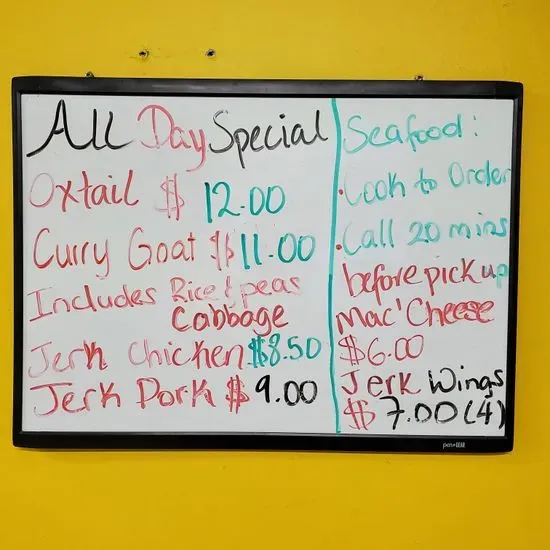 All Day Special
Oxtail $ 12.00
Curry Goat $11.00
Includes Rice & peas
Cabbage
Jerk Chicken $8.50
Jerk Pork $ 9.00
Seafood:
• Cook to Order
• Call 20 mins
before pick up
Mac'Cheese
$6.00
Jerk Wings
$ 7.00 (4)
pen+GEAR